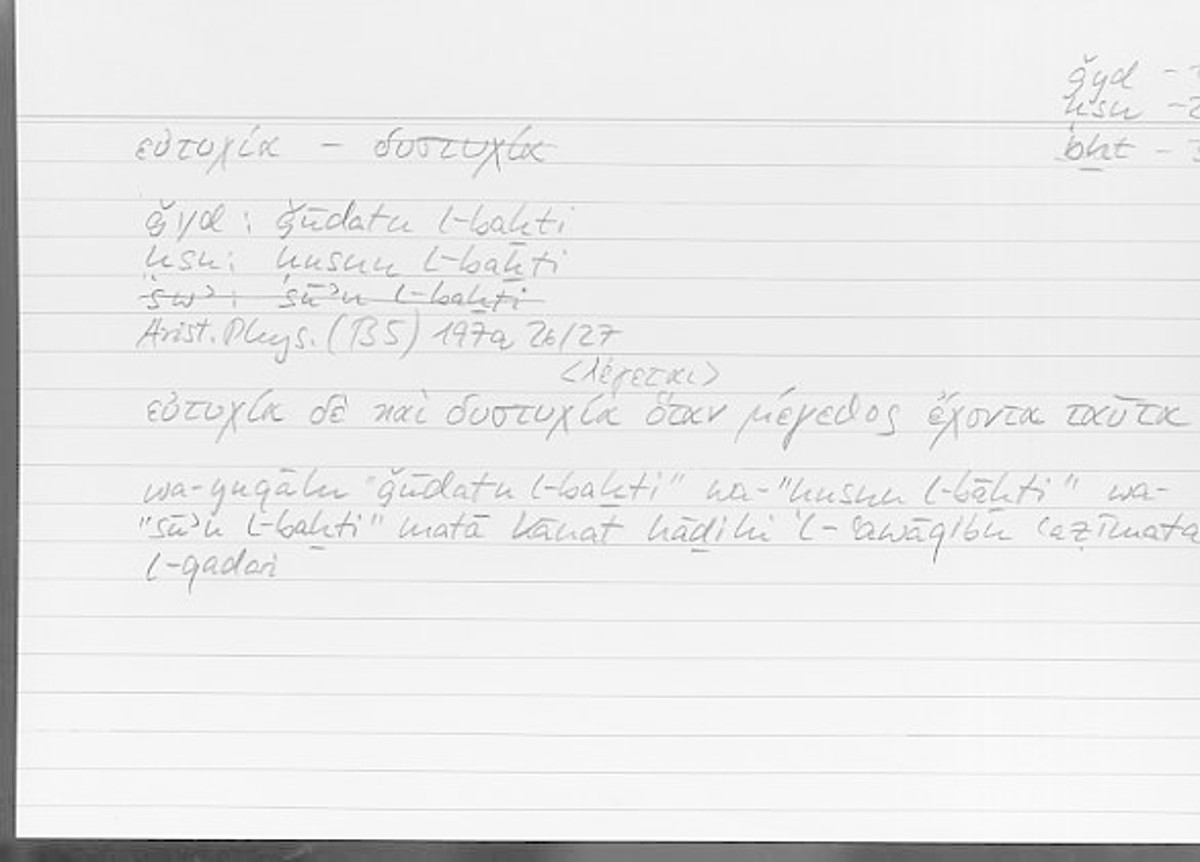 ǧyd –
ḥsn –
bḫt –
εὐτυχία – δυστυχία
ǧyd : ǧūdatu l-baḫti
ḥsn : ḥusnu l-baḫti
sw' : sū'u l-baḫti
Arist. Phys. (B5) 197a 26/27
<λέγεται>
εὐτυχία δὲ καὶ δυστυχία ὅταν μέγεθος ἔχοντα ταῦτα
wa-yuqālu "ǧūdatu l-baḫti" wa-"ḥusnu l-bāḫti" wa-
"sū'u l-baḫti" matā kānat hāḏihi l-ʿawāqibu ʿaẓīmata
l-qadari